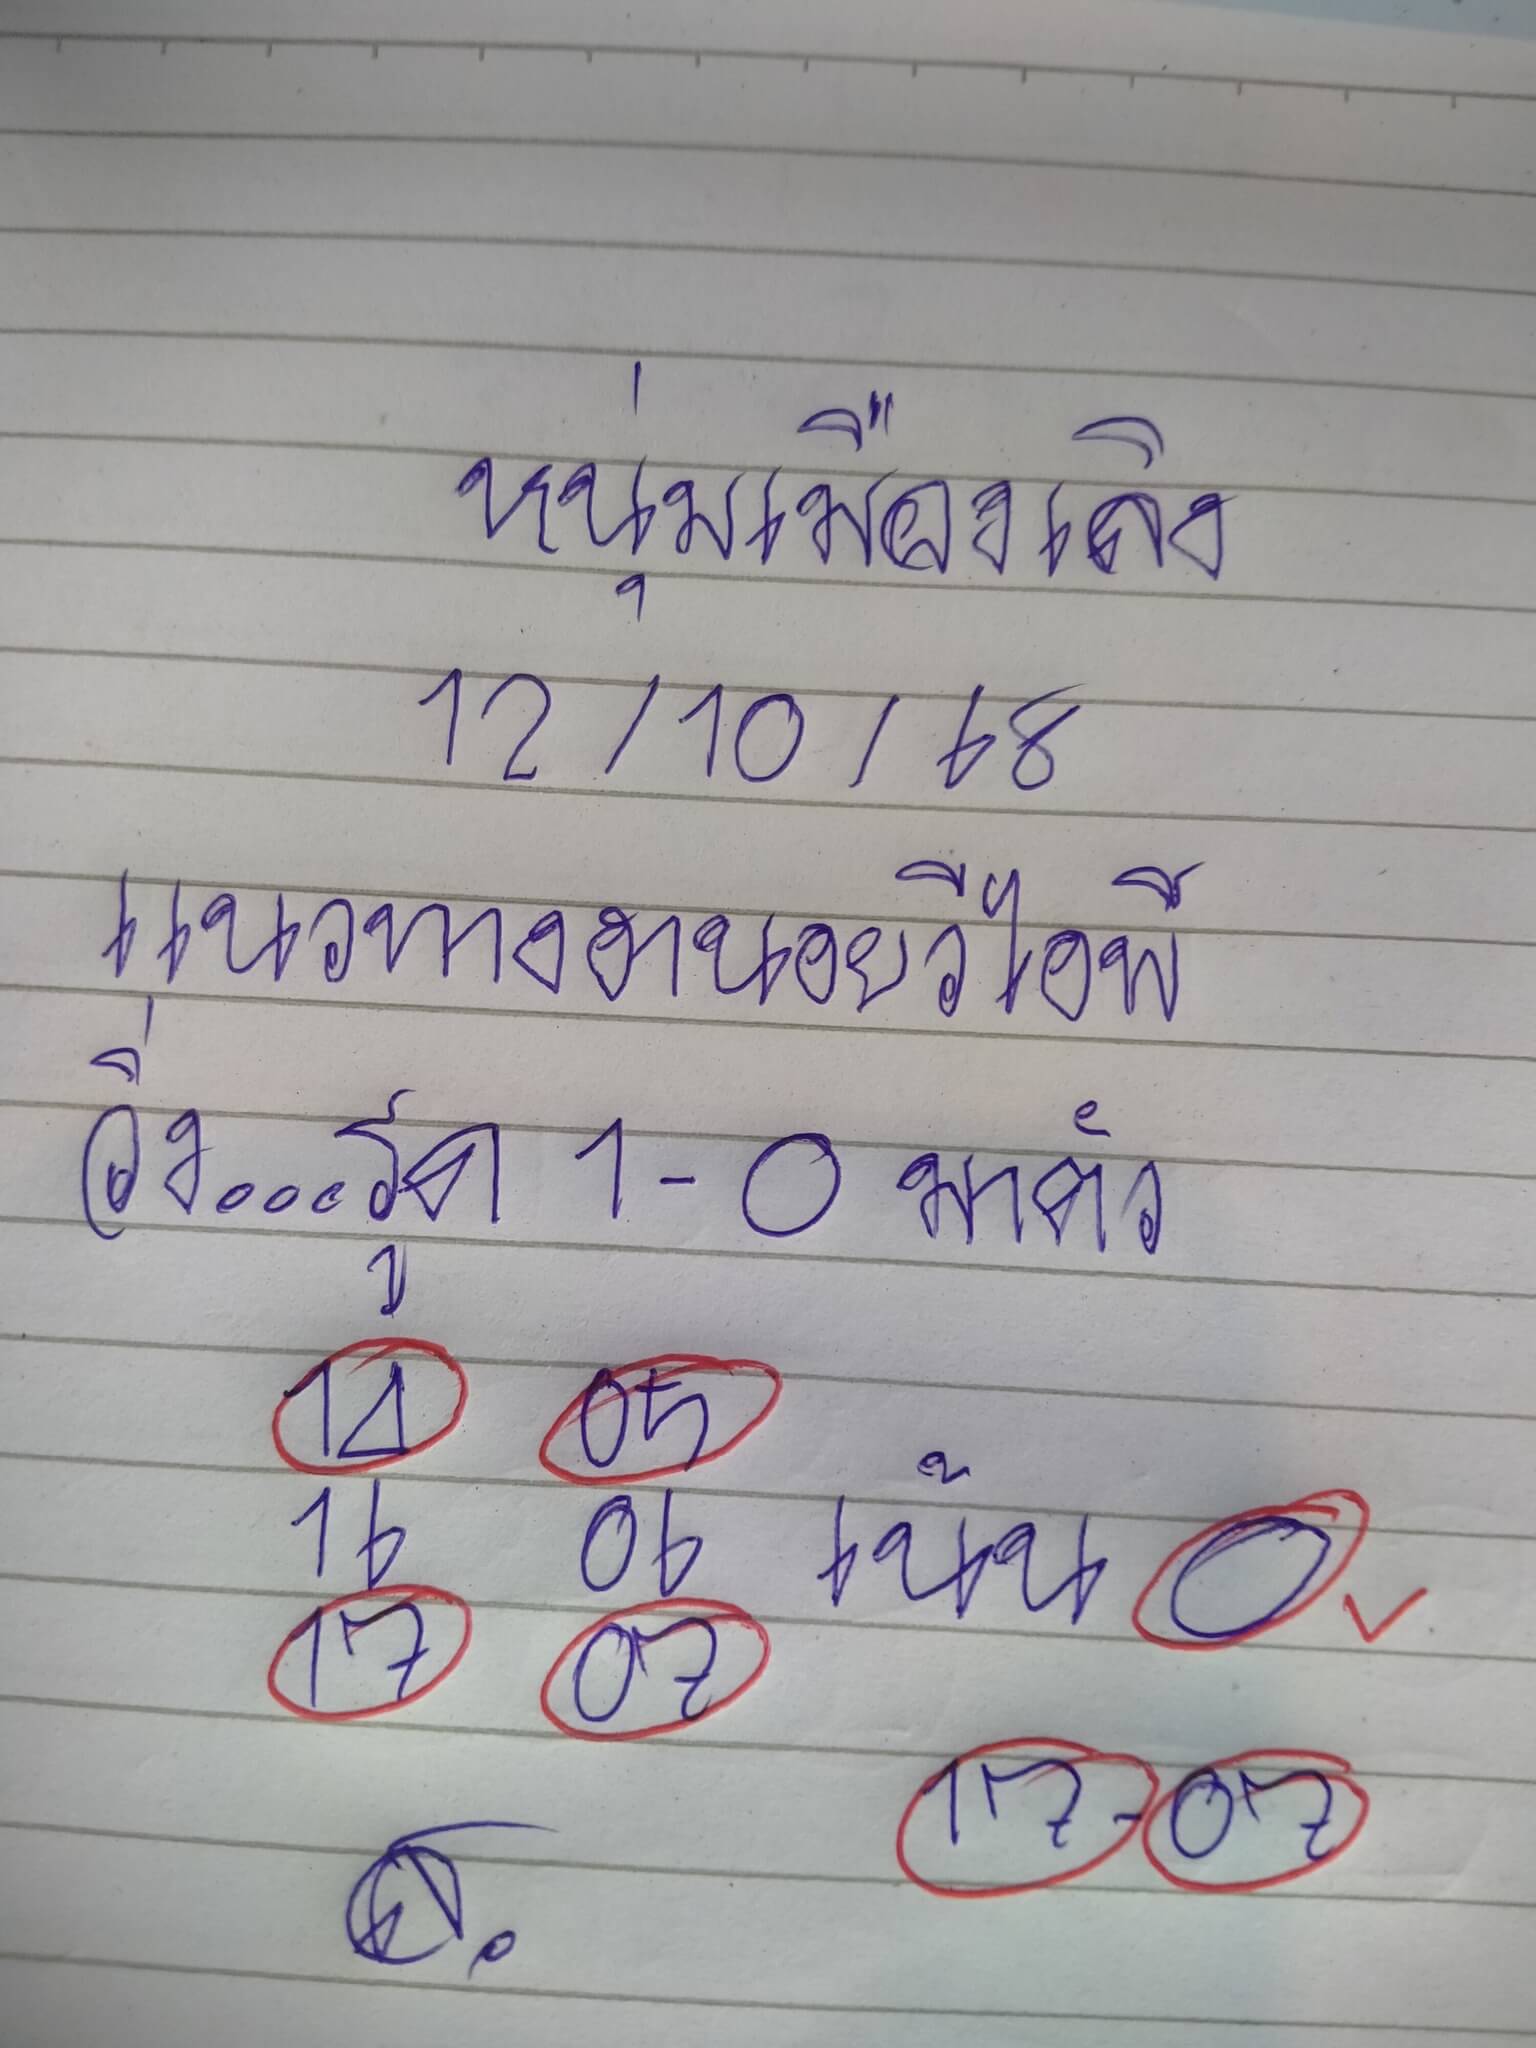 หนุ่มเมืองเลิง
12/10/68
แนวทางฮานอยวีไอพี
วิ่ง...รูด 1-0 มาตัว
14 05
16 06 เน้น 0
17 07
17-07